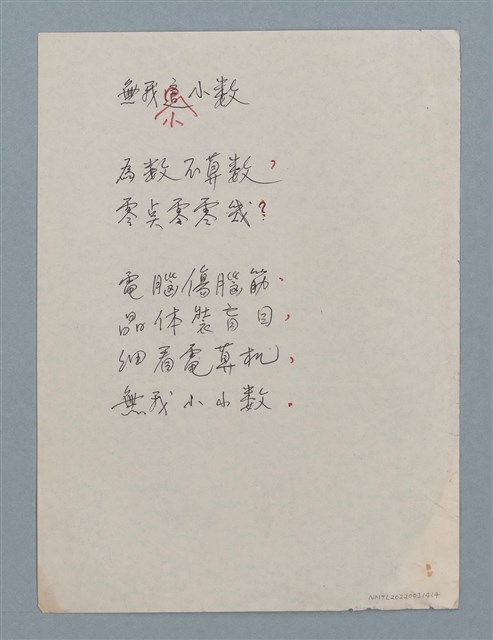 無我這小数
小
為数不算数，
零点零零幾？
電腦傷腦筋、
晶体裝盲目，
细看電算机，
無我小小数．
NMTL20220031414